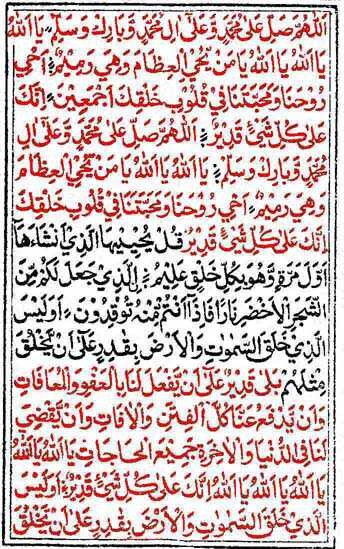 اَللّٰهُمَّ صَلِّ عَلٰى مُحَمَّدٍ وَّعَلٰى اٰلِ مُحَمَّدٍ وَّبَارِكْ وَسَلِّمْ ۞ يَا اَللّٰهُ
يَا اَللّٰهُ يَا اَللّٰهُ يَا مَنْ يُّحْيِ الْعِظَامَ وَهِيَ رَمِيْمٌ ۞ اَحْيِ
رُوْحَنَا وَمَحَبَّتَنَا فِيْ قُلُوْبِ خَلْقِكَ اَجْمَعِيْنَ ۞ اِنَّكَ
عَلٰى كُلِّ شَيْءٍ قَدِيْرٌ ۞ اَللّٰهُمَّ صَلِّ عَلٰى مُحَمَّدٍ وَّعَلٰى اٰلِ
مُحَمَّدٍ وَّبَارِكْ وَسَلِّمْ ۞ يَا اَللّٰهُ يَا اَللّٰهُ يَا مَنْ يُّحْيِ الْعِظَامَ
وَهِيَ رَمِيْمٌ ۞ اَحْيِ رُوْحَنَا وَمَحَبَّتَنَا فِيْ قُلُوْبِ خَلْقِكَ
اِنَّكَ عَلٰى كُلِّ شَيْءٍ قَدِيْرٌ قُلْ يُحْيِيْهَا الَّذِيْ اَنْشَاَهَا
اَوَّلَ مَرَّةٍ وَّهُوَ بِكُلِّ خَلْقٍ عَلِيْمٌ ۞ الَّذِيْ جَعَلَ لَكُمْ مِّنَ
الشَّجَرِ الْاَخْضَرِ نَارًا فَاِذَا اَنْتُمْ مِّنْهُ تُوْقِدُوْنَ ۞ اَوَلَيْسَ
الَّذِيْ خَلَقَ السَّمٰوٰتِ وَالْاَرْضَ بِقٰدِرٍ عَلٰى اَنْ يَّخْلُقَ
مِثْلَهُمْ بَلٰى قَدِيْرٌ عَلٰى اَنْ يَّفْعَلَ لَنَا بِالْعَفْوِ وَالْمُعَافَاتِ
وَاَنْ يَّدْفَعَ عَنَّا كُلَّ الْفِتَنِ وَالْاٰفَاتِ وَاَنْ يَّقْضِيَ
لَنَا فِي الدُّنْيَا وَالْاٰخِرَةِ جَمِيْعَ الْحَاجَاتِ يَا اَللّٰهُ يَا اَللّٰهُ
يَا اَللّٰهُ يَا اَللّٰهُ يَا اَللّٰهُ اِنَّكَ عَلٰى كُلِّ شَيْءٍ قَدِيْرٌ ۞ اَوَلَيْسَ
الَّذِيْ خَلَقَ السَّمٰوٰتِ وَالْاَرْضَ بِقٰدِرٍ عَلٰى اَنْ يَّخْلُقَ